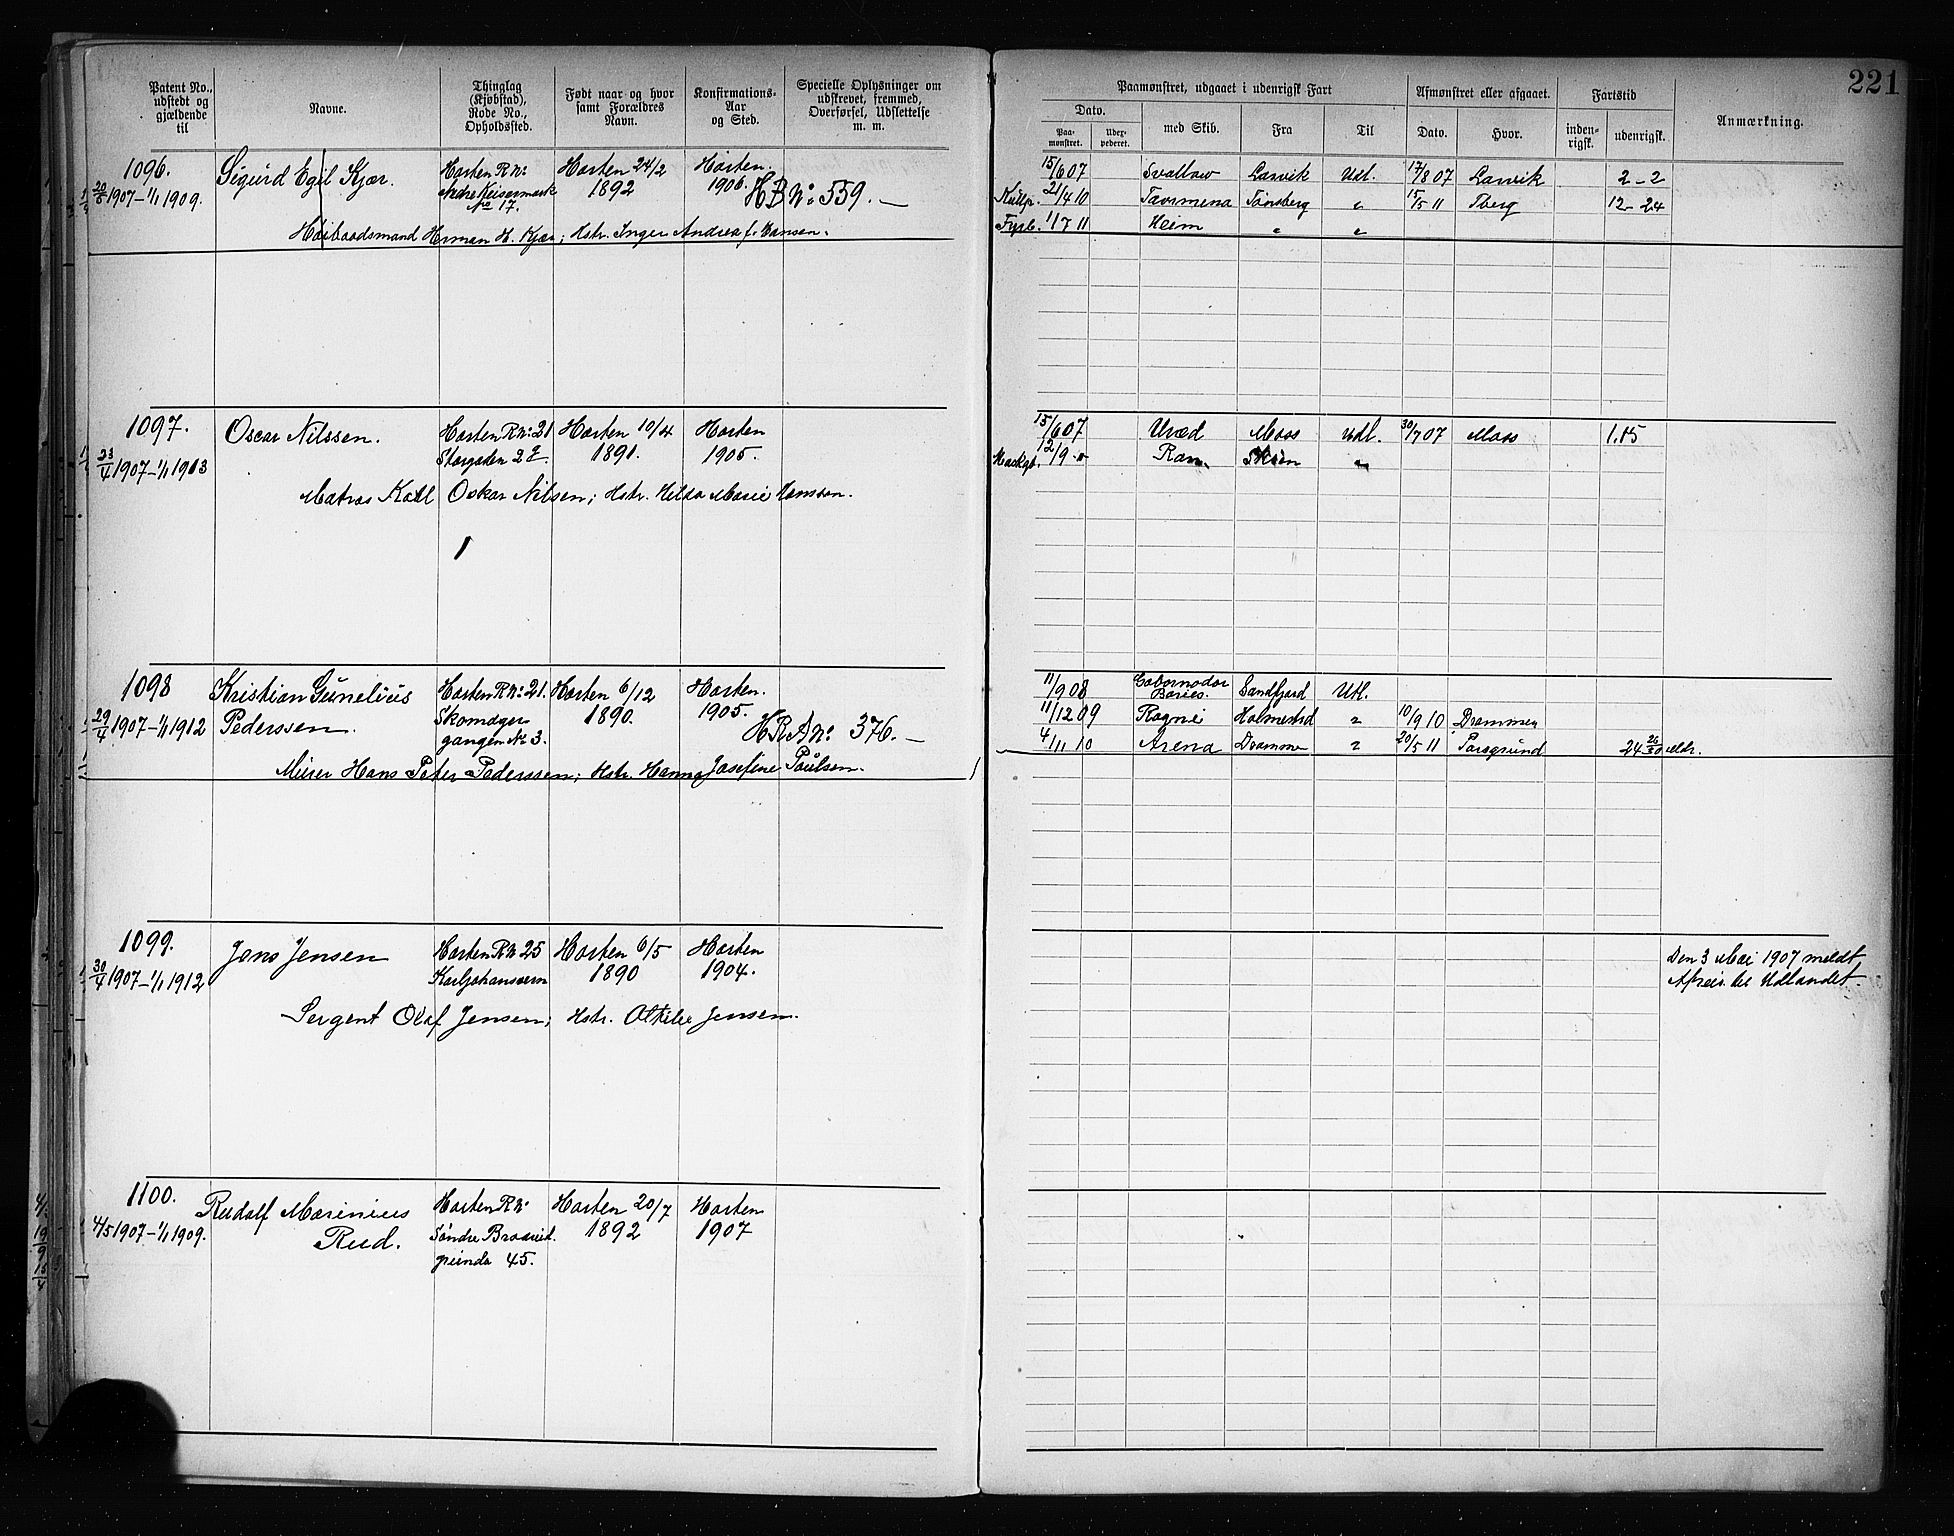 221
Patent No., udstedt og gjældende til
Navne.
Thinglag (Kjøbstad), Rode No., Opholdssted.
Født naar og hvor samt Forældres Navn.
Konfirmations-Aar og Sted.
Specielle Oplysninger om udskrevet, fremmed, Overførsel, Udslettelse m. m.
Paamønstret, udgaaet i udenrigsk Fart
Afmønstret eller afgaaet.
Fartstid
Anmærkning.
Dato.
Paamønstret.
med Skib.
Fra
Til
Dato.
Hvor.
indenrigsk.
udenrigsk.
1096. Sigurd Egil Kjær. Horten R No: Horten 24/2 Horten.
1907–1/1 1909. No 17. 1892 1906. HB No: 559.
Herman H. Kjær; Hstr. Inger Andrea f. Hansen.
15/6 07 Svallow Larvik Udl. 17/8 07 Larvik 2–2
21/4 10 Taormena Tønsberg " 15/5 11 Tberg 12–24
Fyrb. 1/7 11 Heim " "
1097. Oscar Nilssen. Horten R No: 21 Horten 10/4 Horten
23/4 1907–1/1 1913 Storgaden 1891. 1905.
Matros Karl Oskar Nilsen; Hstr. Hilda Marie Hansen.
15/6 07 Uræd Moss Udl. 30/7 07 Moss 1.15
12/9 Ran Skien "
1098 Kristian Gunelius Horten R No: 21. Horten 6/12 Horten.
29/4 1907–1/1 1912 Pederssen. Skomager 1890. 1905. HRA No: 376.
gangen No 3.
Murer Hans Peter Pederssen; Hstr. Hanna Josefine Paulsen.
11/9 08 Sandfjord Utl.
11/12 09 Ragni Holmestrd " 10/9 10 Drammen
4/11 10 Arena Dramme " 20/5 11 Porsgrund 24 26/30 Mdr.
1099. Jens Jensen Horten R No 25 Horten 6/5 Horten
30/4 1907–1/1 1912 Karljohansvern 1890 1904.
Sergent Olaf Jensen; Hstr. Otkilie Jensen.
Den 3 Mai 1907 meldt
Afreis. til Udlandet.
1100. Rudolf Marinius Horten R No: Horten 20/7 Horten
4/5 1907–1/1 1909. Rud. Søndre Braarud. 1892 1907
grunda 45.